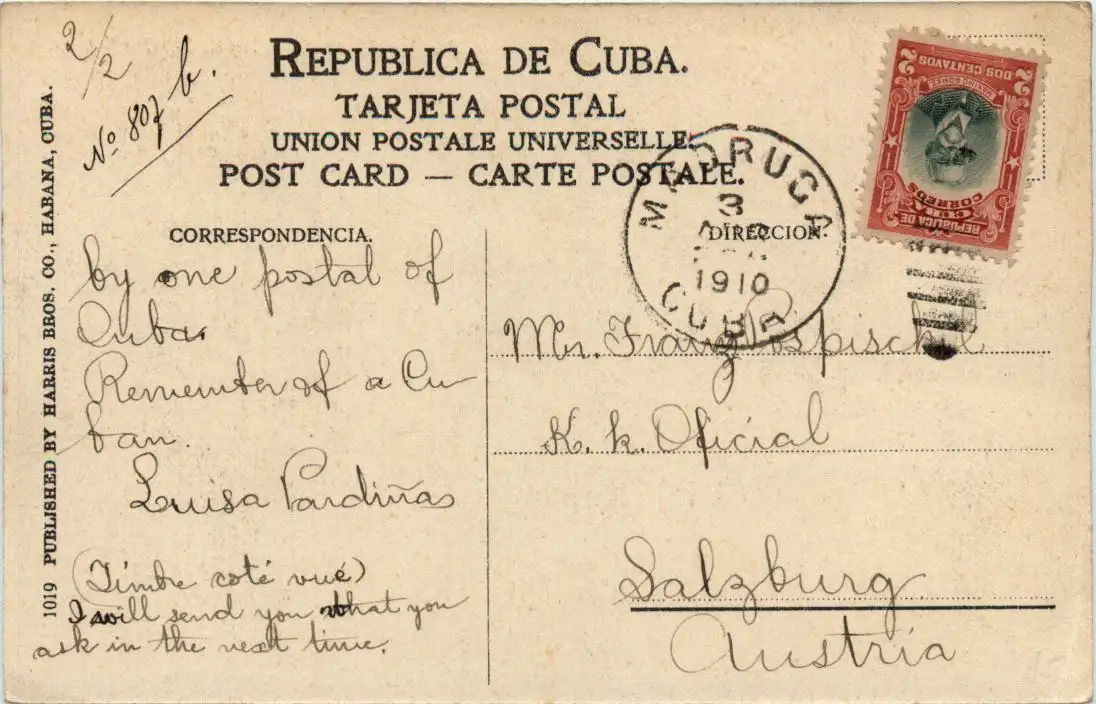 2/2
Nº 807 b.
REPUBLICA DE CUBA.
TARJETA POSTAL
UNION POSTALE UNIVERSELLE.
POST CARD — CARTE POSTALE.
CORRESPONDENCIA.
DIRECCION.
by one postal of
Cuba.
Remember of a Cu-
ban.
Luisa Pardiñas
(Timbre coté vué)
I will send you what you
ask in the next time.
MADRUGA
3
1910
CUBA
2 DOS CENTAVOS 2
MAXIMO GOMEZ
CORREOS
REPUBLICA DE
CUBA
Mr. Franz Pospischil
K. k. Oficial
Salzburg
Austria
1019 PUBLISHED BY HARRIS BROS. CO., HABANA, CUBA.